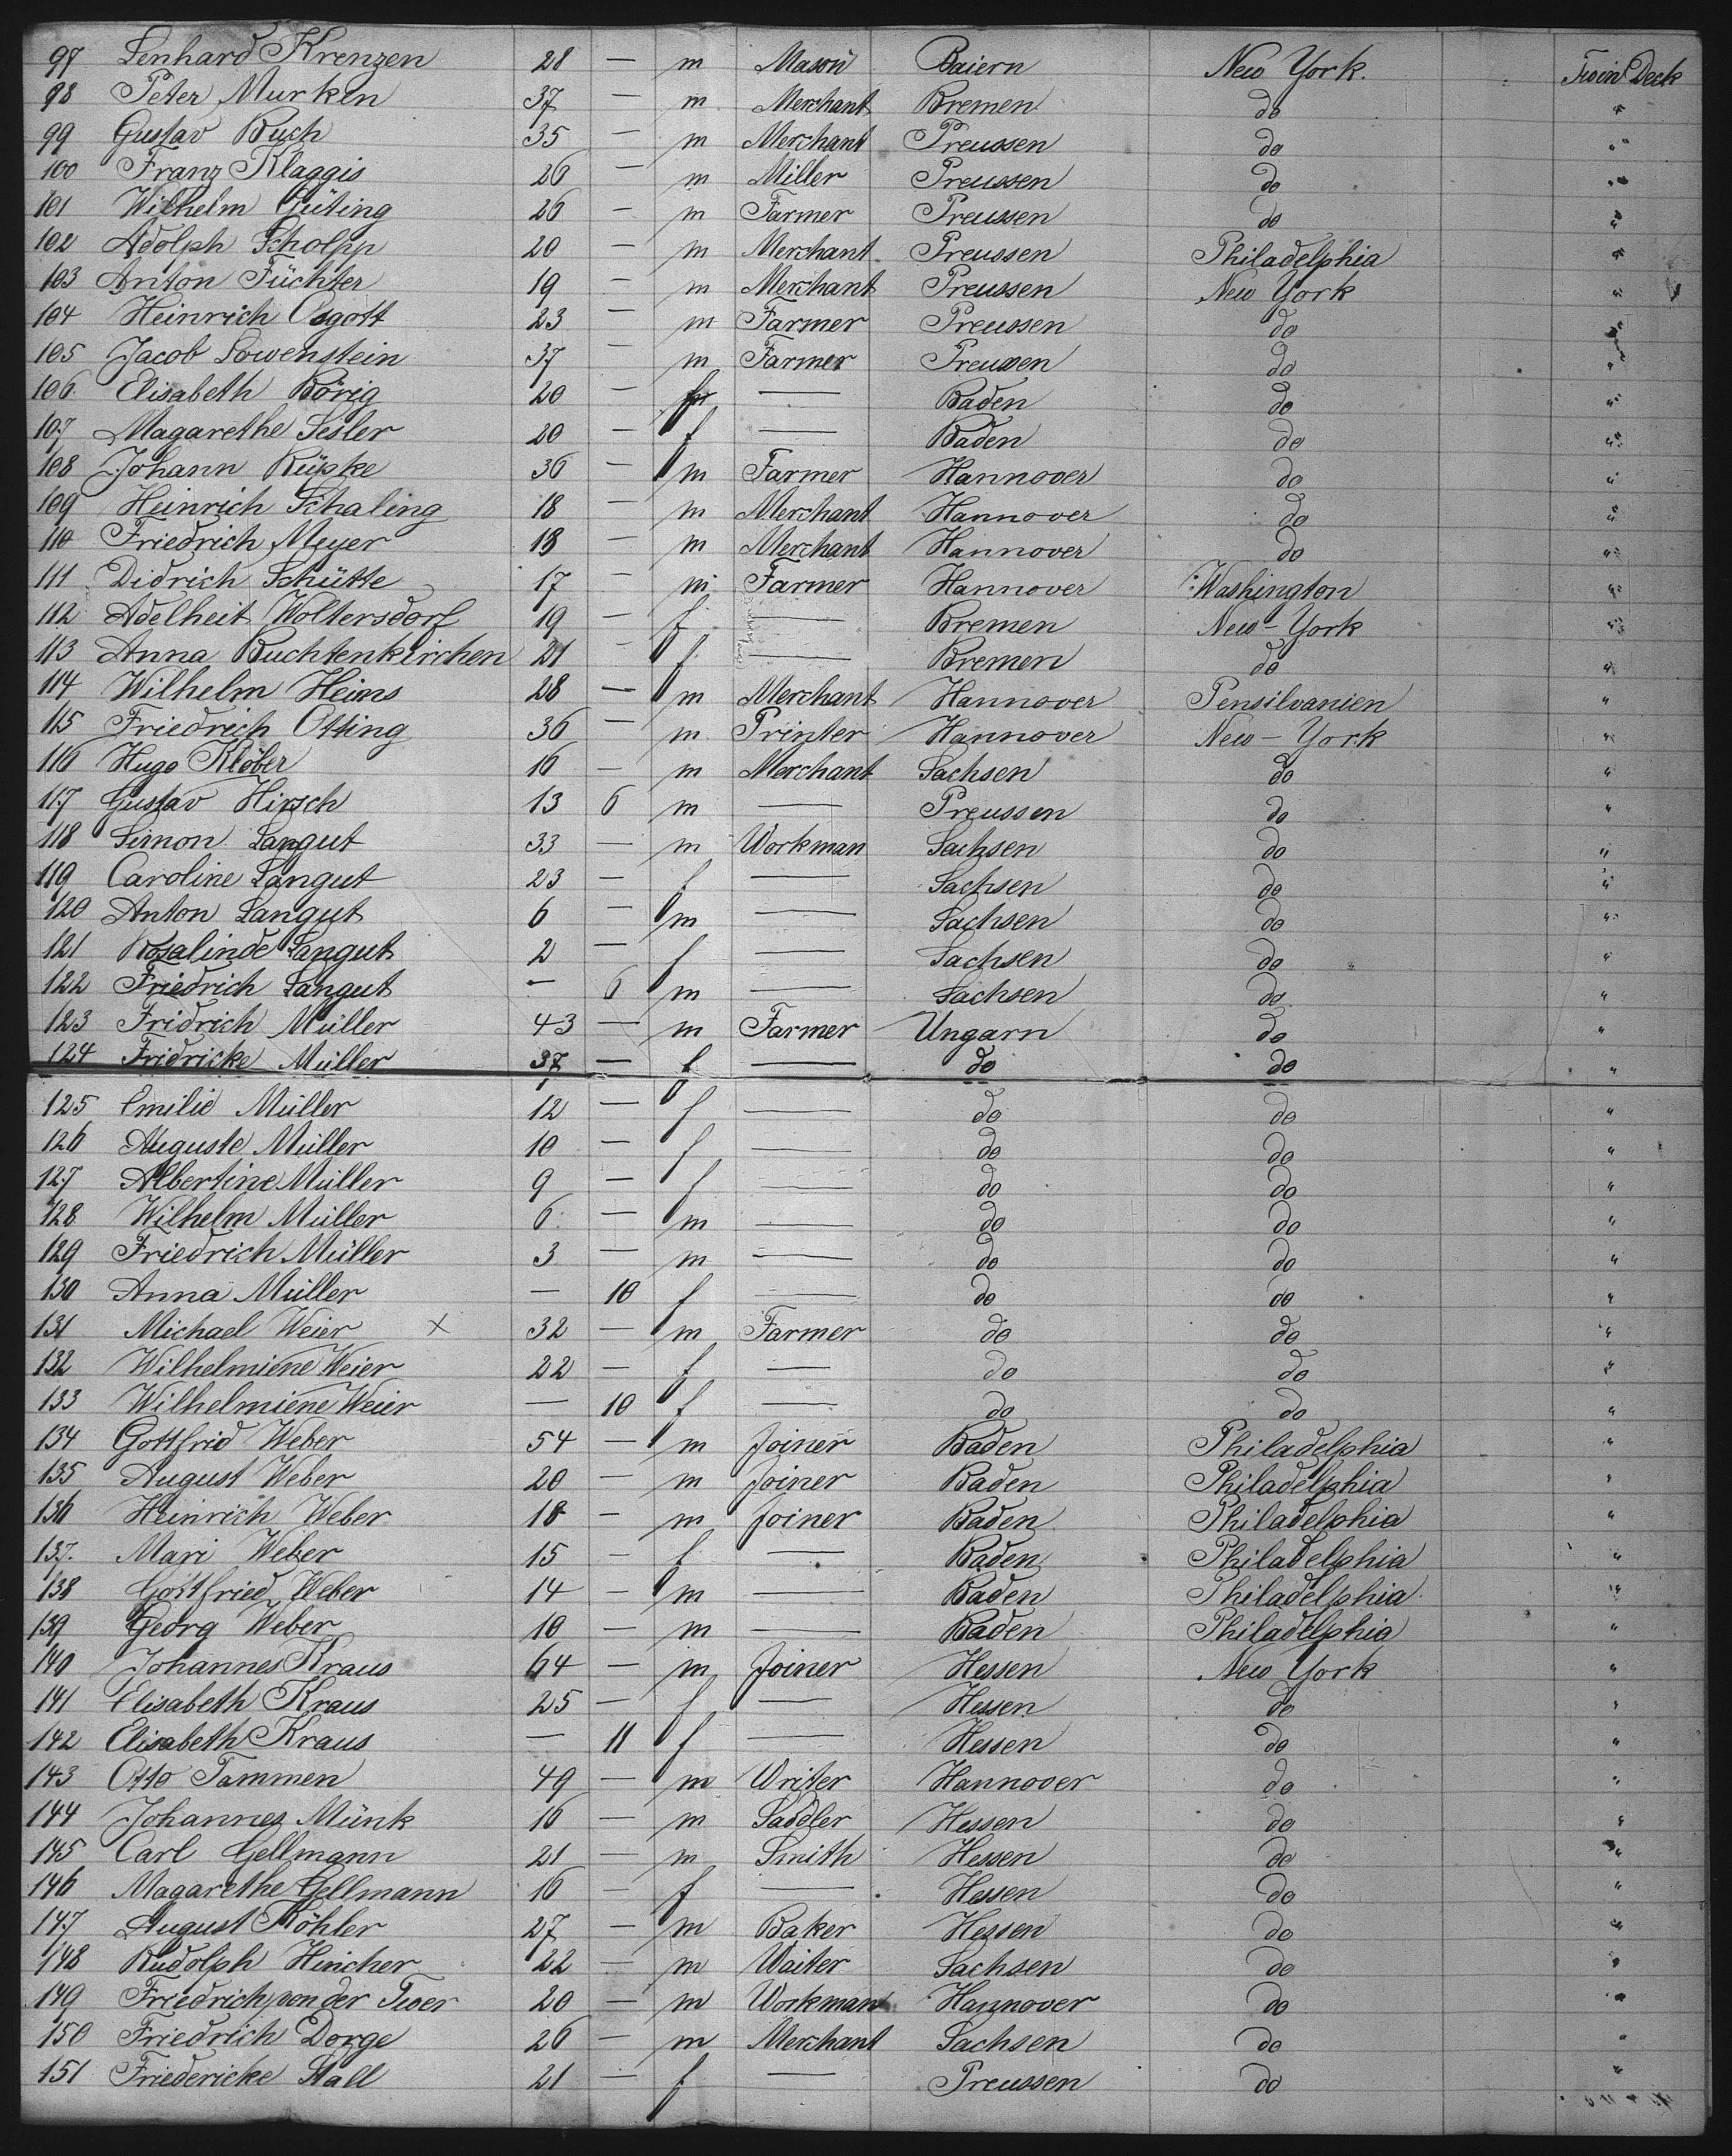 97 Lenhard Krenzen 28 — m Mason Baiern New York. Twin Deck
98 Peter Murken 37 — m Merchant Bremen do "
99 Gustav Buch 35 — m Merchant Preussen do "
100 Franz Klaggis 26 — m Miller Preussen do "
101 Wilhelm Güting 26 — m Farmer Preussen do "
102 Adolph Scholpp 20 — m Merchant Preussen Philadelphia "
103 Anton Füchter 19 — m Merchant Preussen New York "
104 Heinrich Osgott 23 — m Farmer Preussen do "
105 Jacob Lowenstein 37 — m Farmer Preussen do "
106 Elisabeth Börig 20 — f — Baden do "
107 Magarethe Sesler 20 — f — Baden do "
108 Johann Rüpke 36 — m Farmer Hannover do "
109 Heinrich Schaling 18 — m Merchant Hannover do "
110 Friedrich Meyer 18 — m Merchant Hannover do "
111 Didrich Schütte 17 — m Farmer Hannover Washington "
112 Adelheit Woltersdorf 19 — f — Bremen New-York "
113 Anna Buchtenkirchen 21 — f — Bremen do "
114 Wilhelm Heims 28 — m Merchant Hannover Pensilvanien "
115 Friedrich Otting 36 — m Printer Hannover New-York "
116 Hugo Klöber 16 — m Merchant Sachsen do "
117 Gustav Hirsch 13 6 m — Preussen do "
118 Simon Langut 33 — m Workman Sachsen do "
119 Caroline Langut 23 — f — Sachsen do "
120 Anton Langut 6 — m — Sachsen do "
121 Rosalinde Langut 2 — f — Sachsen do "
122 Friedrich Langut — 6 m — Sachsen do "
123 Fridrich Müller 43 — m Farmer Ungarn do "
124 Fridricke Müller 37 — f — do do "
125 Emilie Müller 12 — f — do do "
126 Auguste Müller 10 — f — do do "
127 Albertine Müller 9 — f — do do "
128 Wilhelm Müller 6 — m — do do "
129 Friedrich Müller 3 — m — do do "
130 Anna Müller — 10 f — do do "
131 Michael Weier X 32 — m Farmer do do "
132 Wilhelmiene Weier 22 — f — do do "
133 Wilhelmiene Weier — 10 f — do do "
134 Gottfrid Weber 54 — m Joiner Baden Philadelphia "
135 August Weber 20 — m Joiner Baden Philadelphia "
136 Heinrich Weber 18 — m Joiner Baden Philadelphia "
137. Mari Weber 15 — f — Baden Philadelphia "
138 Gottfried Weber 14 — m — Baden Philadelphia "
139 Georg Weber 10 — m — Baden Philadelphia "
140 Johannes Kraus 64 — m Joiner Hessen New York "
141 Elisabeth Kraus 25 — f — Hessen do "
142 Elisabeth Kraus — 11 f — Hessen do "
143 Otto Tammen 49 — m Writer Hannover do "
144 Johannes Münk 16 — m Saddler Hessen do "
145 Carl Gellmann 21 — m Smith Hessen do "
146 Magarethe Gellmann 16 — f — Hessen do "
147 August Köhler 27 — m Baker Hessen do "
148 Rudolph Hincher 22 — m Waiter Sachsen do "
149 Friedrich von der Twer 20 — m Workman Hannover do "
150 Friedrich Dorge 26 — m Merchant Sachsen do "
151 Friedericke Stall 21 — f — Preussen do "